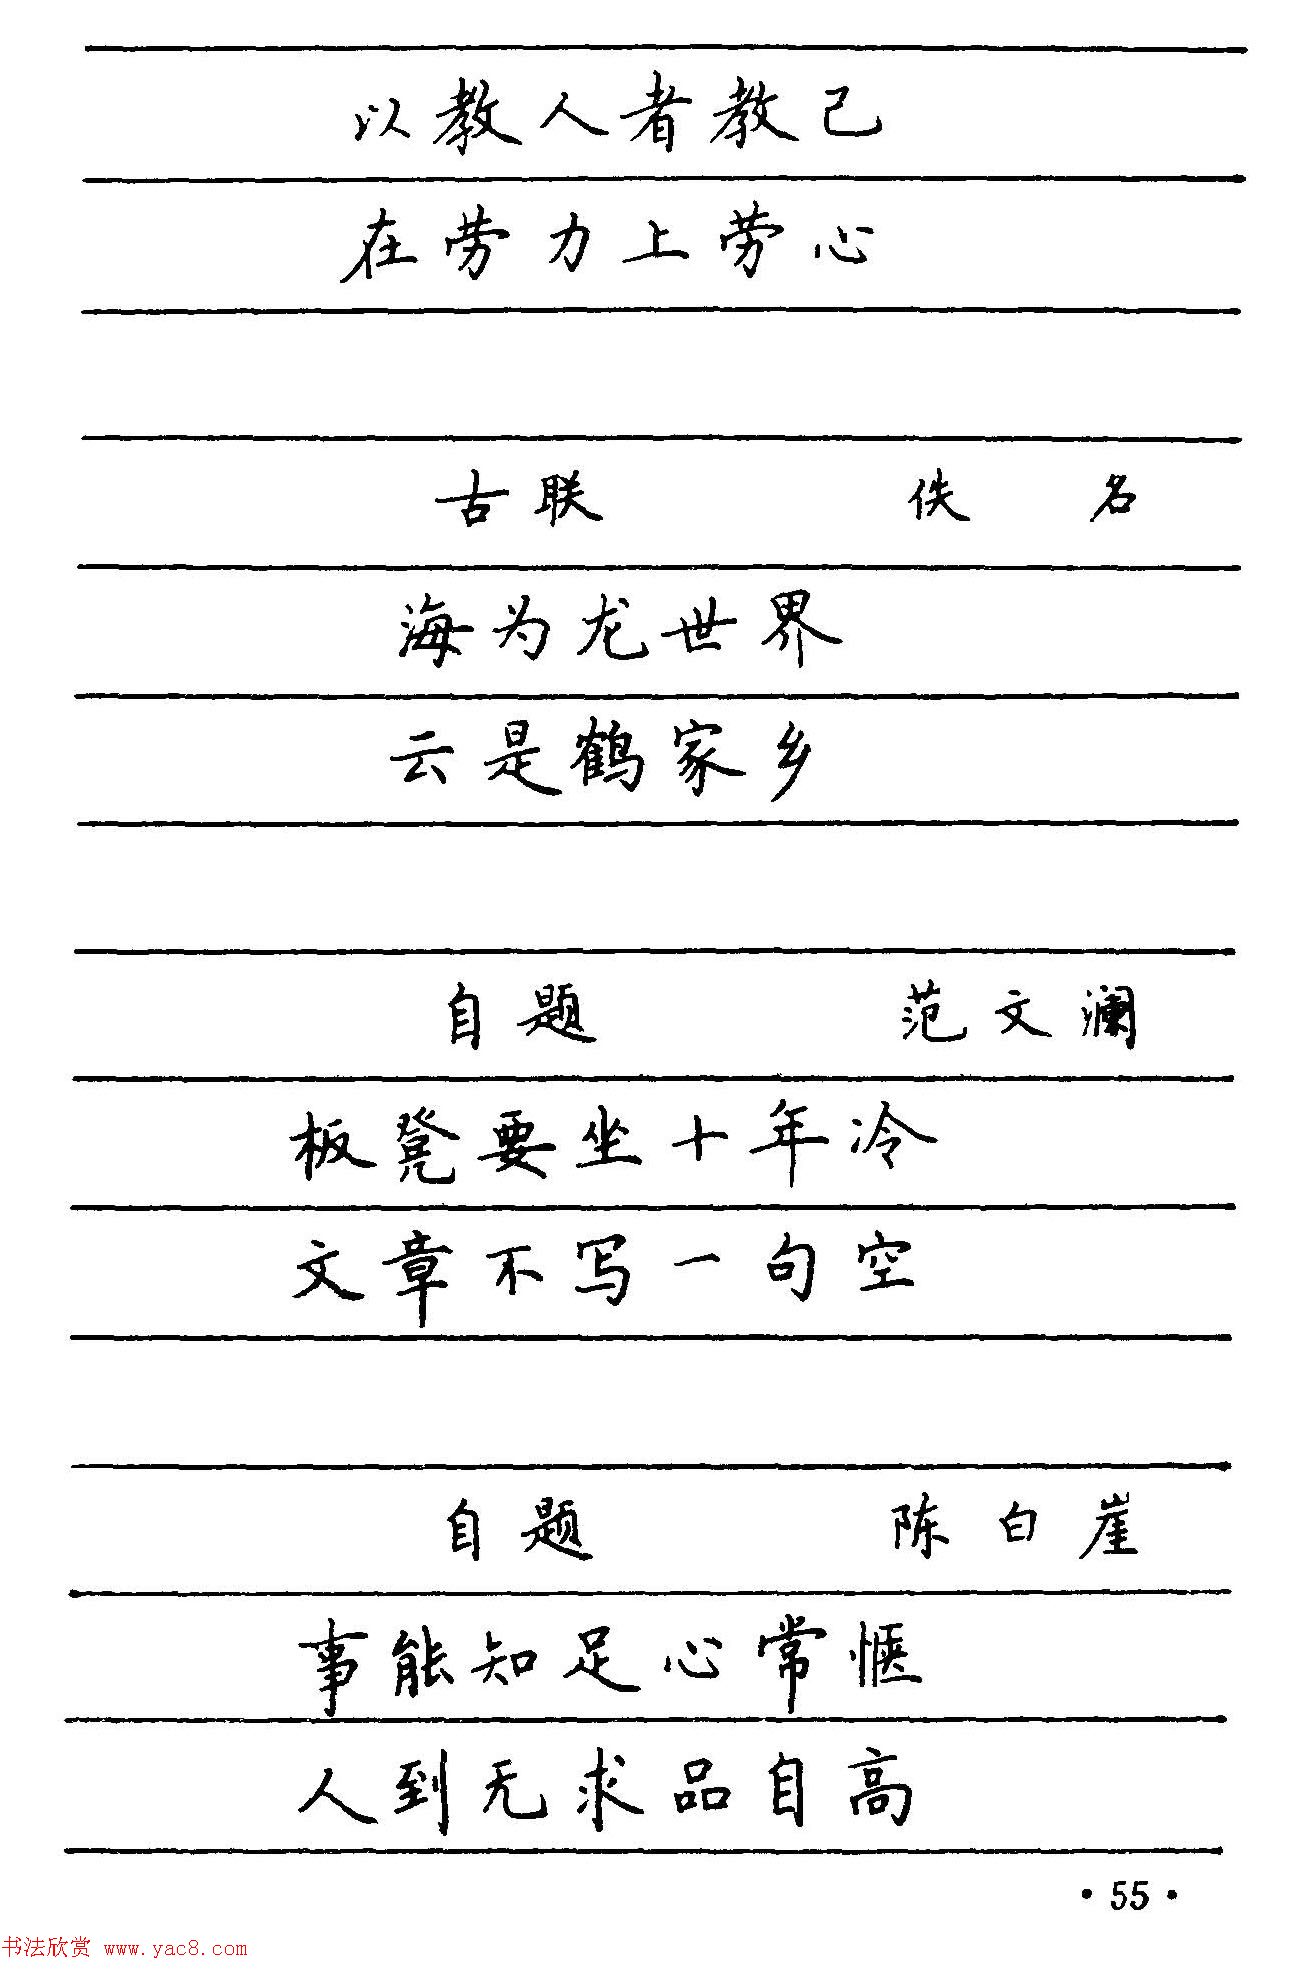 以教人者教己
在劳力上劳心
古联 佚名
海为龙世界
云是鹤家乡
自题 范文澜
板凳要坐十年冷
文章不写一句空
自题 陈白崖
事能知足心常惬
人到无求品自高
·55·
书法欣赏 www.yac8.com